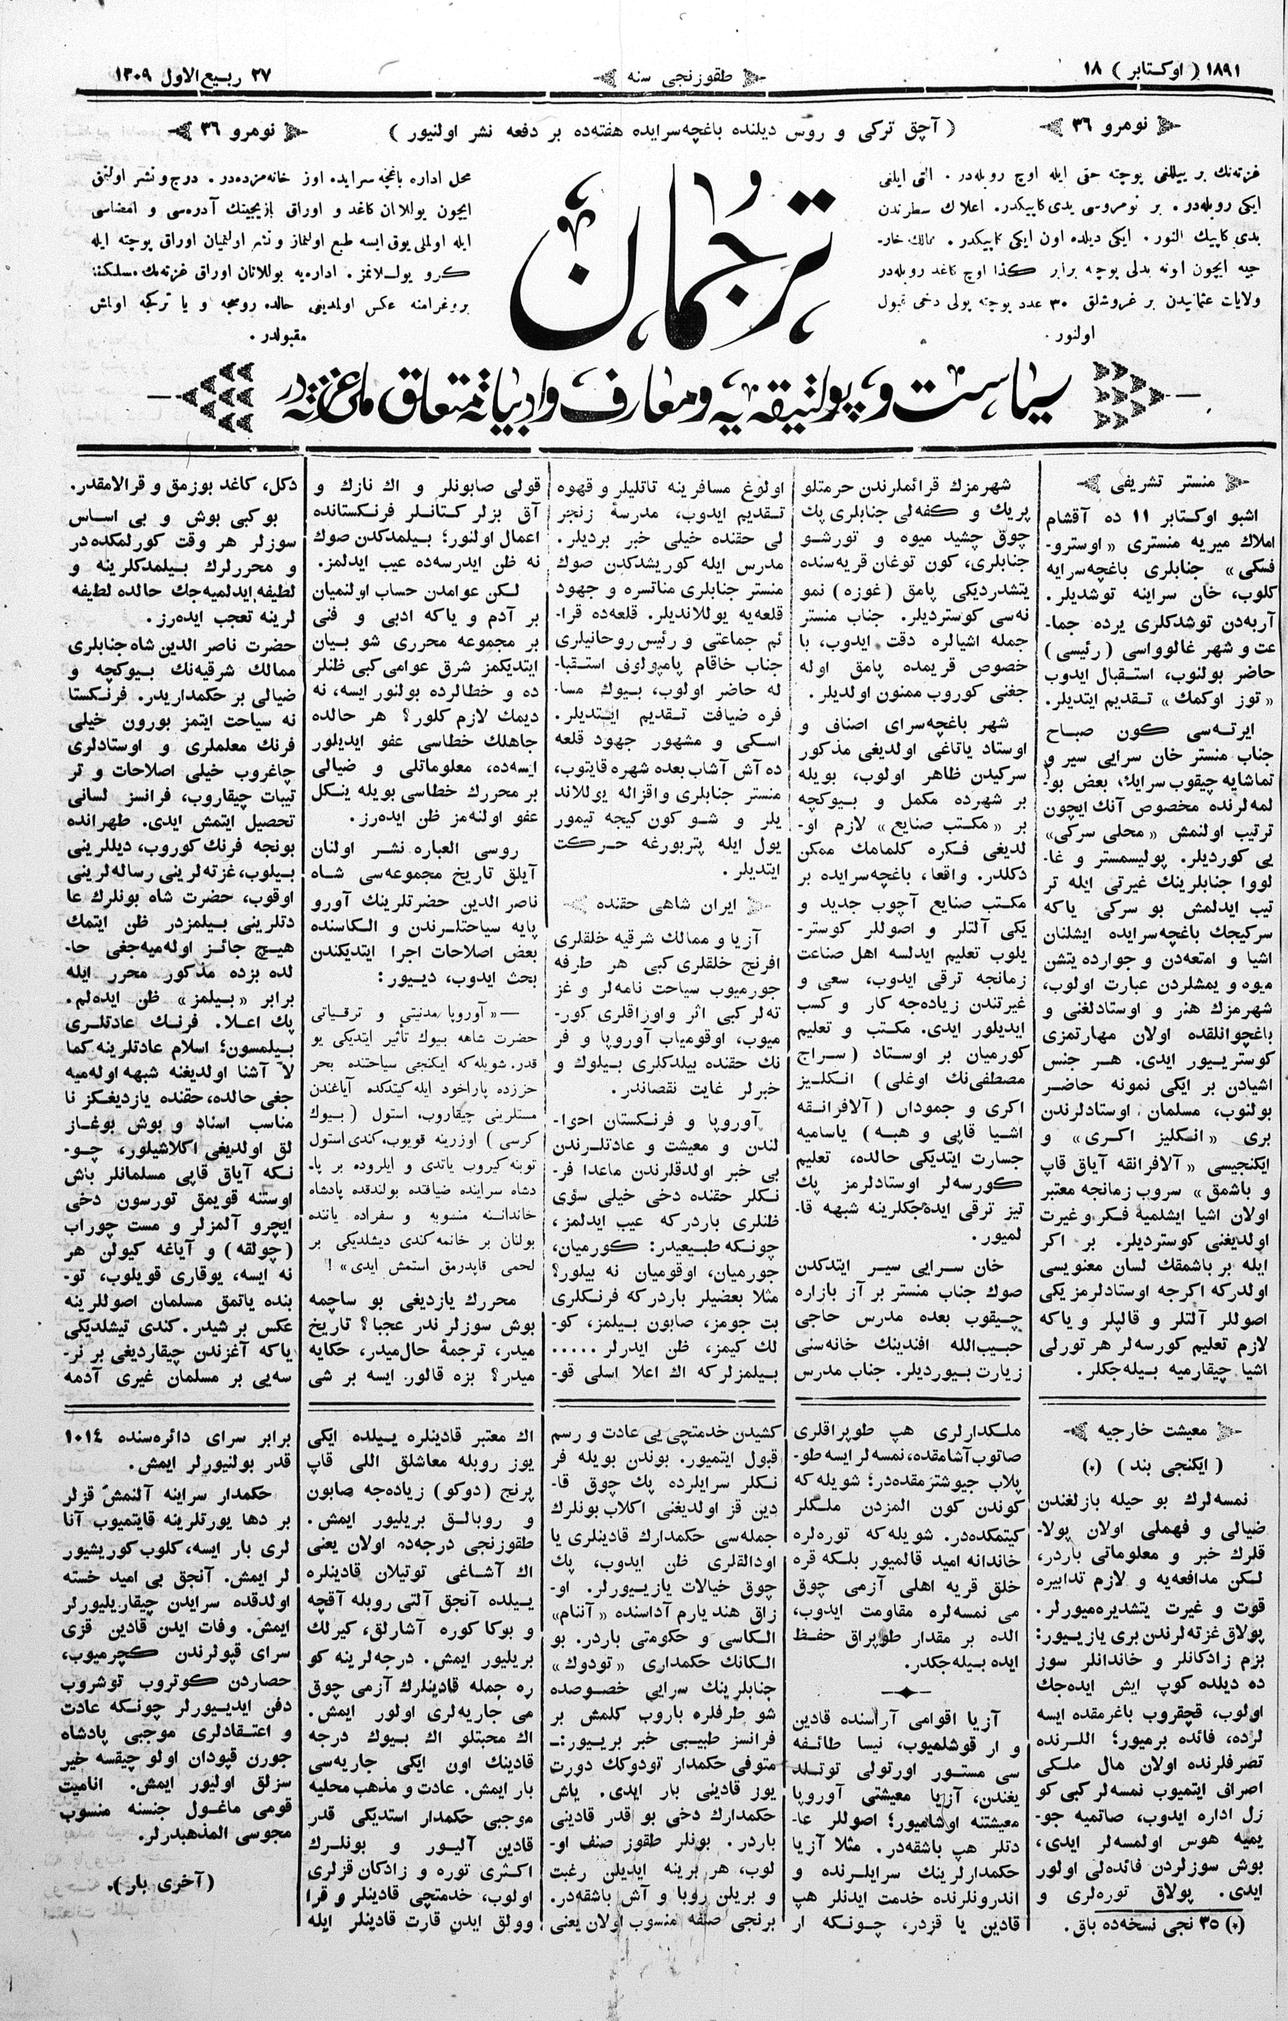 ١٨٩١ ( اوكتابر ) ١٨
طقوزنجی سنه
٢٧ ربیع الاول ١٣٠٩
نومرو ٣٦
( آچق تركی و روس دیلنده باغچه‌سرایده هفته‌ده بر دفعه نشر اولنیور )
نومرو ٣٦
غزته‌نك بر ییللغی پوچته حقی ایله اوچ روبله‌در . التی ایلغی
ایكی روبله‌در . بر نومروسی یدی كاپیكدر . اعلان سطرندن
یدی كاپیك النور . ایكی دیلده اون ایكی كاپیكدر . ممالك خار-
جیه ایچون اونه بدلی پوچه برابر كذا اوچ كاغد روبله‌در
ولایات عثمانیدن بر غروشلق ٣٠ عدد پوچته پولی دخی قبول
اولنور .
ترجمان
محل اداره باغچه سرایده اوز خانه‌مزده‌در . درج و نشر اولنمق
ایچون یوللانان كاغد و اوراق یازیجینك آدره‌سی و امضاسی
ایله اولملی یوق ایسه طبع اولنماز و نشر اولنمیان اوراق پوچته ایله
كرو یوللانمز . اداره‌یه یوللانان اوراق غزته‌مك مسلكنه
پروغرامنه عكس اولمدیغی حالده روسجه و یا تركجه اولمش
مقبولدر .
سیاست و پولتیقه‌یه و معارف و ادبیاته متعلق ملی غزته‌در
منستر تشریفی
اشبو اوكتابر ١١ ده آقشام
املاك میریه منستری «اوسترو-
فسكی» جنابلری باغچه‌سرایه
كلوب، خان سراینه توشدیلر.
آربه‌دن توشدكلری یرده جما-
عت و شهر غالوواسی (رئیسی)
حاضر بولنوب، استقبال ایدوب
«توز اوكمك» تقدیم ایتدیلر.
ایرته‌سی كون صباح
جناب منستر خان سرایی سیر و
تماشایه چیقوب سرایك، بعض بو-
لمه‌لرنده مخصوص آنك ایچون
ترتیب اولنمش «محلی سركی»
یی كوردیلر. پولیسمستر و غا-
لووا جنابلرینك غیرتی ایله تر
تیب ایدلمش بو سركی یاكه
سركیجك باغچه‌سرایده ایشلنان
اشیا و امتعه‌دن و جوارده یتشن
میوه و یمشلردن عبارت اولوب،
شهرمزك هنر و اوستادلغنی و
باغچوانلقده اولان مهارتمزی
كوستریور ایدی. هر جنس
اشیادن بر ایكی نمونه حاضر
بولنوب، مسلمان اوستادلرندن
بری «انكلیز اكری» و
ایكنجیسی «آلافرانقه آیاق قاپ
و باشمق» سروب زمانجه معتبر
اولان اشیا ایشلمیه فكر و غیرت
اولدیغنی كوستردیلر. بر اكر
ایله بر باشمقك لسان معنویسی
اولدركه اكرجه اوستادلرمز یكی
اصوللر آلتلر و قالپلر و یاكه
لازم تعلیم كورسه‌لر هر تورلی
اشیا چیقارمیه بیله‌جكلر.
شهرمزك قرائملرندن حرمتلو
پریك و كفه‌لی جنابلری پك
چوق چشید میوه و تورشو
جنابلری، كون توغان قریه‌سنده
یتشدردیكی پامق (غوزه) نمو
نه‌سی كوستردیلر. جناب منستر
جمله اشیالره دقت ایدوب، با
خصوص قریمده پامق اوله
جغنی كوروب ممنون اولدیلر.
شهر باغچه‌سرای اصناف و
اوستاد یاتاغی اولدیغی مذكور
سركیدن ظاهر اولوب، بویله
بر شهرده مكمل و بیوكچه
بر «مكتب صنایع» لازم او-
لدیغی فكره كلمامك ممكن
دكلدر. واقعا، باغچه‌سرایده بر
مكتب صنایع آچوب جدید و
یكی آلتلر و اصوللر كوستر-
یلوب تعلیم ایدلسه اهل صناعت
زمانجه ترقی ایدوب، سعی و
غیرتندن زیاده‌جه كار و كسب
ایدیلور ایدی. مكتب و تعلیم
كورمیان بر اوستاد (سراج
مصطفی‌نك اوغلی) انكلیز
اكری و جمودان (آلافرانقه
اشیا قاپی و هبه) یاسامیه
جسارت ایتدیكی حالده، تعلیم
كورسه‌لر اوستادلرمز پك
تیز ترقی ایده‌جكلرینه شبهه قا-
لمیور.
خان سرایی سیر ایتدكدن
صوك جناب منستر بر آز بازاره
چیقوب بعده مدرس حاجی
حبیب‌الله افندینك خانه‌سنی
زیارت بیوردیلر. جناب مدرس
اولوغ مسافرینه تاتلیلر و قهوه
تقدیم ایدوب، مدرسهٔ زنجر
لی حقنده خیلی خبر بردیلر.
مدرس ایله كوریشدكدن صوك
منستر جنابلری مناتسره و جهود
قلعه‌یه یوللاندیلر. قلعه‌ده قرا-
ئم جماعتی و رئیس روحانیلری
جناب خاقام پامپولوف استقبا-
له حاضر اولوب، بیوك مسا-
فره ضیافت تقدیم ایتدیلر.
اسكی و مشهور جهود قلعه
ده آش آشاب بعده شهره قایتوب،
منستر جنابلری واقزاله یوللاند
یلر و شو كون كیجه تیمور
یول ایله پتربورغه حركت
ایتدیلر.
ایران شاهی حقنده
آزیا و ممالك شرقیه خلقلری
افرنج خلقلری كبی هر طرفه
جورمیوب سیاحت نامه‌لر و غز
ته‌لر كبی اثر و اوراقلری كور-
میوب، اوقومیاب آوروپا و فر
نك حقنده بیلدكلری بیلوك و
خبرلر غایت نقصاندر.
آوروپا و فرنكستان احوا-
لندن و معیشت و عادتلرندن
بی خبر اولدقلرندن ماعدا فر-
نكلر حقنده دخی خیلی سؤی
ظنلری باردركه عیب ایدلمز،
چونكه طبیعیدر: كورمیان،
جورمیان، اوقومیان نه بیلور؟
مثلا بعضیلر باردركه فرنكلری
بت جومز، صابون بیلمز، كو-
لك كیمز، ظن ایدرلر .....
بیلمزلركه اك اعلا اسلی قو-
قولی صابونلر و اك نازك و
آق بزلر كتانلر فرنكستانده
اعمال اولنور؛ بیلمدكدن صوك
نه ظن ایدرسه‌ده عیب ایدلمز.
لكن عوامدن حساب اولنمیان
بر آدم و یاكه ادبی و فنی
بر مجموعه محرری شو بیان
ایتدیكمز شرق عوامی كبی ظنلر
ده و خطالرده بولنور ایسه، نه
دیمك لازم كلور؟ هر حالده
جاهلك خطاسی عفو ایدیلور
ایسه‌ده، معلوماتلی و ضیالی
بر محررك خطاسی بویله ینكل
عفو اولنه‌مز ظن ایده‌رز.
روسی العباره نشر اولنان
آیلق تاریخ مجموعه‌سی شاه
ناصر الدین حضرتلرینك آورو
پایه سیاحتلرندن و الكاسنده
بعض اصلاحات اجرا ایتدیكندن
بحث ایدوب، دییور:
— «آوروپا مدنیتی و ترقیاتی
حضرت شاهه بیوك تأثیر ایتدیكی یو
قدر. شویله‌كه ایكنجی سیاحتنده بحر
حزرده پاراخود ایله كیتدكده آیاغندن
مستلرینی چیقاروب، استول (بیوك
كرسی) اوزرینه قویوب، كندی استول
توبنه كیروب یاتدی و ایلروده بر پا-
دشاه سراینده ضیافتده بولندقده پادشاه
خانداننه منسوبه و سفراده یاننده
بولنان بر خانمه كندی دیشلدیكی بر
لحمی قاپدرمق استمش ایدی»!
محررك یازدیغی بو ساچمه
بوش سوزلر ندر عجبا؟ تاریخ
میدر، ترجمهٔ حال‌میدر، حكایه
میدر؟ بزه قالور، ایسه بر شی
دكل، كاغد بوزمق و قرالامقدر.
بو كبی بوش و بی اساس
سوزلر هر وقت كورلمكده‌در
و محررلرك بیلمدكلرینه و
لطیفه ایدلمیه‌جك حالده لطیفه
لرینه تعجب ایده‌رز.
حضرت ناصر الدین شاه جنابلری
ممالك شرقیه‌نك بیوكچه و
ضیالی بر حكمداریدر. فرنكستا
نه سیاحت ایتمز بورون خیلی
فرنك معلملری و اوستادلری
چاغروب خیلی اصلاحات و تر
تیبات چیقاروب، فرانسز لسانی
تحصیل ایتمش ایدی. طهرانده
بونجه فرنك كوروب، دیللرینی
بیلوب، غزته‌لرینی رساله‌لرینی
اوقوب، حضرت شاه بونلرك عا
دتلرینی بیلمزدر ظن ایتمك
هیچ جائز اوله‌میه‌جغی حا-
لده بزده مذكور محرر ایله
برابر «بیلمز» ظن ایده‌لم.
پك اعلا. فرنك عادتلری
بیلمسون؛ اسلام عادتلرینه كما
لا آشنا اولدیغنه شبهه اوله‌میه
جغی حالده، حقنده یازدیغكز نا
مناسب اسناد و بوش بوغاز
لق اولدیغی اكلاشیلور، چو-
نكه آیاق قاپی مسلمانلر باش
اوستنه قویمق تورسون دخی
ایچرو آلمزلر و مست چوراب
(چولقه) و آیاغه كیولن هر
نه ایسه، یوقاری قویلوب، تو-
بنده یاتمق مسلمان اصوللرینه
عكس بر شیدر. كندی تیشلدیكی
یاكه آغزندن چیقاردیغی بر نر-
سه‌یی بر مسلمان غیری آدمه
معیشت خارجیه
( ایكنجی بند ) (٭)
نمسه‌لرك بو حیله یازلغندن
ضیالی و فهملی اولان پولا-
قلرك خبر و معلوماتی باردر،
لكن مدافعه‌یه و لازم تدابیره
قوت و غیرت یتشدیره‌میورلر.
پولاق غزته‌لرندن بری یازییور:
بزم زادكانلر و خاندانلر سوز
ده دیلده كوپ ایش ایده‌جك
اولوب، قچقروب باغرمقده ایسه
لرده، فائده برمیور؛ اللرنده
تصرفلرنده اولان مال ملكی
اصراف ایتمیوب نمسه‌لر كبی كو
زل اداره ایدوب، صاتمیه جو-
یمیه هوس اولمسه‌لر ایدی،
بوش سوزلردن فائده‌لی اولور
ایدی. پولاق توره‌لری و
(٭) ٣٥ نجی نسخه‌ده باق.
ملكدارلری هپ طوپراقلری
صاتوب آشامقده، نمسه‌لر ایسه طو-
پلاب جیوشتزمقده‌در؛ شویله‌كه
كوندن كون المزدن ملكلر
كیتمكده‌در. شویله‌كه توره‌لره
خاندانه امید قالمیور بلكه قره
خلق قریه اهلی آزمی چوق
می نمسه‌لره مقاومت ایدوب،
الده بر مقدار طوپراق حفظ
ایده بیله‌جكدر.
آزیا اقوامی آراسنده قادین
و ار قوشلمیوب، نیسا طائفه
سی مستور اورتولی توتلد
یغندن، آزیا معیشتی آوروپا
معیشتنه اوشامیور؛ اصوللر عا-
دتلر هپ باشقه‌در. مثلا آزیا
حكمدارلرینك سرایلرنده و
اندرونلرنده خدمت ایدنلر هپ
قادین یا قزدر، چونكه ار
كشیدن خدمتچی یی عادت و رسم
قبول ایتمیور. بوندن بویله فر
نكلر سرایلرده پك چوق قا-
دین قز اولدیغنی اكلاب بونلرك
جمله‌سی حكمدارك قادینلری یا
اودالقلری ظن ایدوب، پك
چوق خیالات یازییورلر. او-
زاق هند یارم آداسنده «آننام»
الكاسی و حكومتی باردر. بو
الكانك حكمداری «تودوك»
جنابلرینك سرایی خصوصده
شو طرفلره باروب كلمش بر
فرانسز طبیبی خبر بریور:-
متوفی حكمدار تودوكك دورت
یوز قادینی بار ایدی. یاش
حكمدارك دخی بو قدر قادینی
باردر. بونلر طقوز صنف او-
لوب، هر برینه ایدیلن رغبت
و بریلن روبا و آش باشقه‌در.
برنجی صنفه منسوب اولان یعنی
اك معتبر قادینلره ییلده ایكی
یوز روبله معاشلق اللی قاپ
پرنج (دوكو) زیاده‌جه صابون
و روبالق بریلیور ایمش.
طقوزنجی درجه‌ده اولان یعنی
اك آشاغی توتیلان قادینلره
ییلده آنجق آلتی روبله آقچه
و بوكا كوره آشارلق، كیرلك
بریلیور ایمش. درجه‌لرینه كو
ره جمله قادینلرك آزمی چوق
می جاریه‌لری اولور ایمش.
اك محبتلو اك بیوك درجه
قادینك اون ایكی جاریه‌سی
بار ایمش. عادت و مذهب محلیه
موجبی حكمدار استدیكی قدر
قادین آلیور و بونلرك
اكثری توره و زادكان قزلری
اولوب، خدمتچی قادینلر و قرا
وولق ایدن قارت قادینلر ایله
برابر سرای دائره‌سنده ١٠١٤
قدر بولنیورلر ایمش.
حكمدار سراینه آلنمش قزلر
بر دها یورتلرینه قایتمیوب آنا
لری بار ایسه، كلوب كوریشیور
لر ایمش. آنجق بی امید خسته
اولدقده سرایدن چیقاریلیورلر
ایمش. وفات ایدن قادین قزی
سرای قپولرندن كچرمیوب،
حصاردن كوتروب توشروب
دفن ایدییورلر چونكه عادت
و اعتقادلری موجبی پادشاه
جورن قپودان اولو چیقسه خیر
سزلق اولیور ایمش. انامیت
قومی ماغول جنسنه منسوب
مجوسی المذهبدرلر.
(آخری بار).